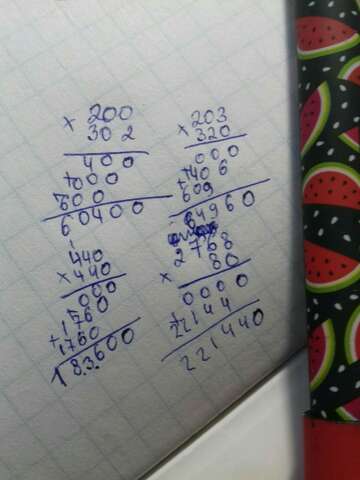 × 200
302
400
+ 000
600
60400
× 203
320
000
+ 406
609
64960
440
× 440
000
1760
+ 1760
183600
2768
× 80
0000
+ 22144
221440